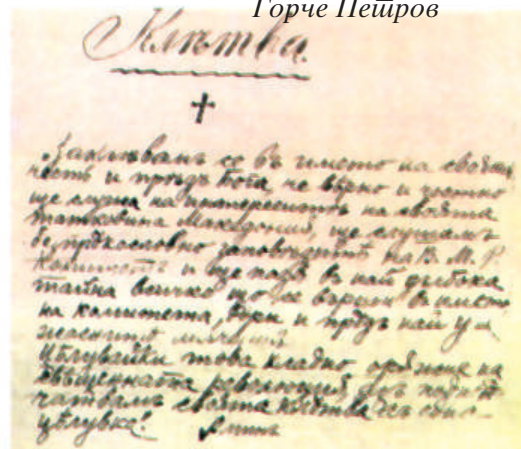 Горче Петров
Клѣтва.
Заклѣвамъ се въ името на своята
честь и прѣдъ Бога, че вѣрно и честно
ще служа на интереситѣ на своята
татковина Македония, ще слушамъ
безпрѣкословно заповѣдитѣ на В. М. Р.
Комитетъ и ще пазя въ най дибока
тайна всичко що се върши въ името
на комитета, дори и прѣдъ най у-
жаснитѣ
Цѣлувайки това хладно орѫжие на
свѣщенната революция, азъ
своята клѣтва съ
цѣлувка! Аминь